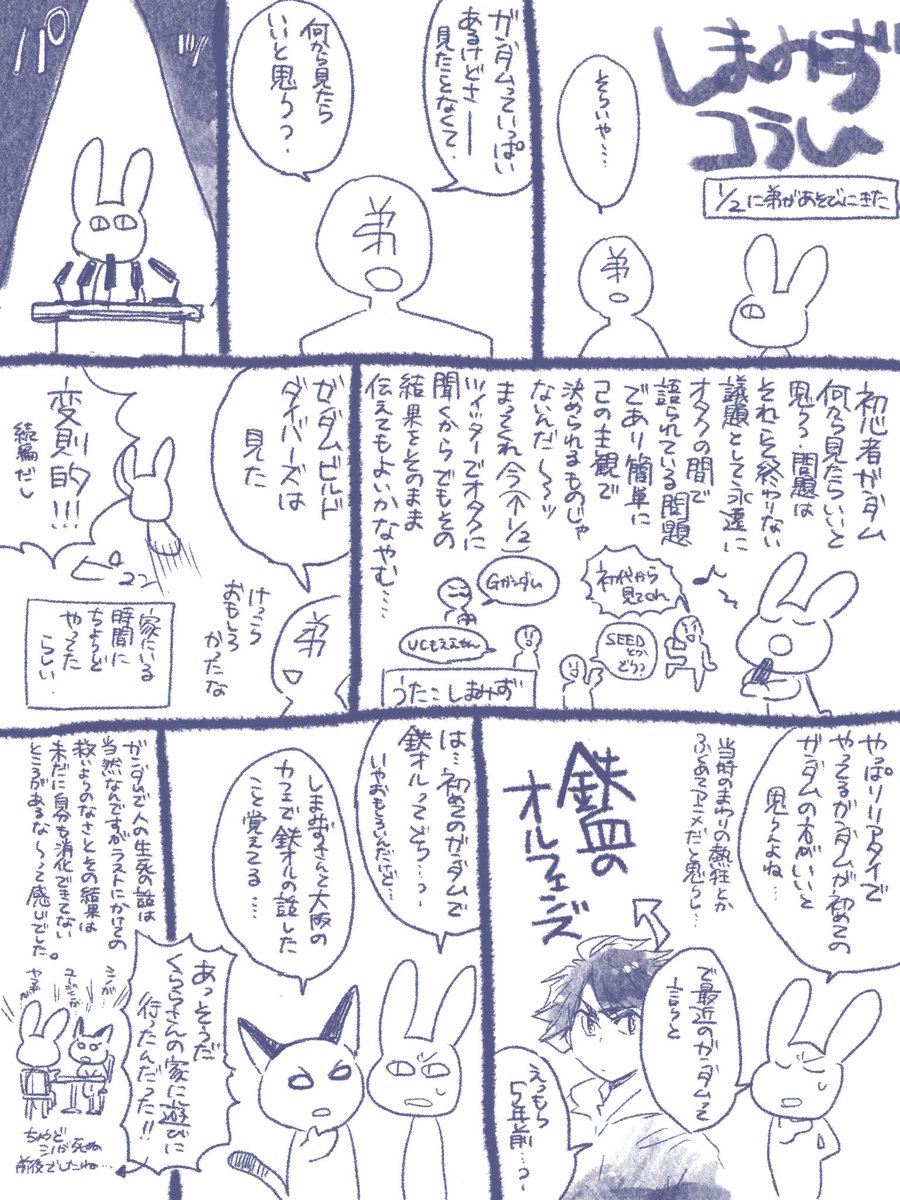 しまみず
コラム
1/2に弟があそびにきた
そういや…
ガンダムっていっぱい
あるけどさー
見たことなくて、
何から見たら
いいと思う?
弟
弟
パッ
初心者ガンダム
何から見たらいいと
思う?問題は
それこそ終わりない
議題として永遠に
オタクの間で
語られている問題
であり簡単に
己の主観で
決められるものじゃ
ないんだ〜〜ッ
まってくれ今(1/2)
ツイッターでオタクに
聞くからでもその
結果をそのまま
伝えてもよいかなやむ…
初代から
見てくれ
SEED
とか
どう?
Gガンダム
UCもええやん
うたこしまみず
ガンダムビルド
ダイバーズは
見た
弟
けっこう
おもしろ
かったな
変則的!!!
続編だし
家にいる
時間に
ちょうど
やってた
らしい。
やっぱりリアタイで
やってるガンダムが初めての
ガンダムの方がいいと
思うんよね…
当時のまわりの熱狂とか
ふくめてアニメだと思うし…
で最近のガンダムって
言うと
鉄血の
オルフェンズ
えっもう
5年前…?
は…初めてのガンダムで
鉄オルってどう…?
いやおもろいんだけど…
しまみずさんと大阪の
カフェで鉄オルの話した
こと覚えてる…
あっそうだ
くららさんの家に遊びに
行ったんだった!!
ガンダムで人の生死の話は
当然なんですがラストにかけての
救いようのなさとその結果は
未だに自分も消化できてない
ところがあるな〜って感じでした。
シノが
ユージンが
ヤマギが
ちょうど
シノが死ぬ
前後でしたね…